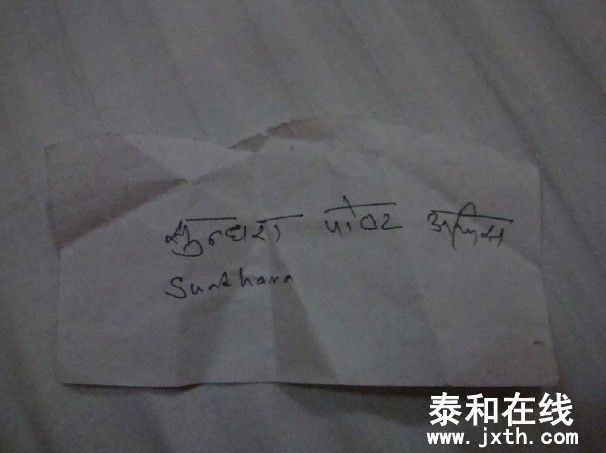 सुन्धरा पोष्ट अफिस
Sundhara
泰和在线
www.jxth.com